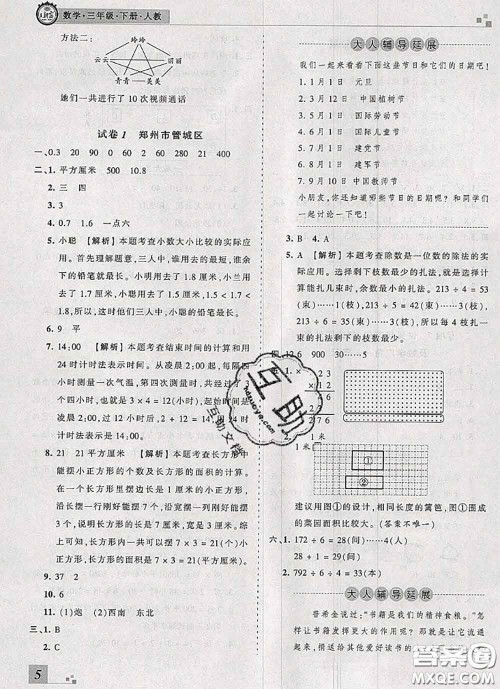 数学·三年级·下册·人教
方法二：
玲玲
云云 丽丽
青青 美美
她们一共进行了10次视频通话
试卷1 郑州市管城区
一、0.3 20 90 0 60 2 60 280 21 400
二、1.平方厘米 500 10.8
2.
3.三 四
4.0.7 1.6 一点六
5.小聪 【解析】本题考查小数大小比较的实际
应用。首先理解题意，三人中，谁用去的最多，谁剩下
的铅笔就最长。小明用去了1.8厘米，小兰用
去了1.5厘米，小聪用去了1.7厘米，1.5＜1.7＜
1.8。所以，他们三人中，小
6.9 平
7.14:00 【解析】本题考查结束时间的计算和用
24时计时法表示时间。从凌晨2:00起，每隔四
小时测量一次气温，第四次测量时，共过了3个
4小时，也就是3×4＝12(小时)，起始时间是
凌晨2:00，过12小时后，2＋12＝14，用24时计
时法表示是14:00。
8.21 21平方厘米 【解析】本题考查长方形
能摆小正方形的个数及长方形的面积的计算。
小正方形的边长是1厘米，沿长边能摆7个
小正方形，说明长方形的长是7厘米，沿宽边能摆
3个，说明长方形的宽是3厘米，7×3＝21(个)，
所以，长方形的面积是7×3＝21(平方厘米)
9.37 2
10.6
11.(1)炮 (2)西南 东北
三、1.B
2.C 3.B
5
大人辅导延展
我们一起来看看下面这些节日的日期吧！
1.1月1日 元旦
2.3月12日 中国植树节
3.5月1日 国际劳动节
4.6月1日 国际儿童节
5.7月1日 建党节
6.8月1日 建军节
7.9月10日 中国教师节
小朋友，你还知道哪些节日的日期呢？和同学们
一起讨论一下吧！
3.B 4.A
5.A 【解析】本题考查除数是一位数的除法的实
际应用。选择剩下枝数最少的扎法，计算时
能扎几束时，余数最小的扎法。213÷4＝53
(束)……1(枝)，213÷5＝42(束)……3(枝)，
213÷6＝35(束)……3(枝)，所以，每4枝扎
一束的扎法剩下的枝数最少。
900 30
五、1.
×12
276
2. 1米
1米
建议用图①的设计，相同长度的篱笆，图①围成
的菜园面积比较大。(答案不唯一)
六、1.172÷6＝28(间)……4(人)
28＋1＝29(间)
2.792÷6÷4＝33(本)
大人辅导延展
普希金说过：“书籍是我们的精神食粮。”怎样
让书籍发挥更大的作用呢？那当
互助
互助文库
hdzuoye.com
答案圈
MXQE.COM